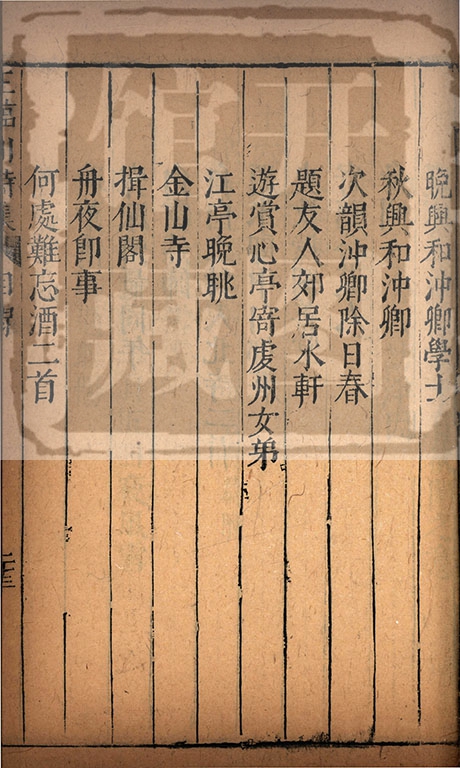 晚興和沖卿學士
秋興和沖卿
次韻沖卿除日春
題友人郊居水軒
遊賞心亭寄虔州女弟
江亭晚眺
金山寺
揖仙閣
舟夜即事
何處難忘酒二首